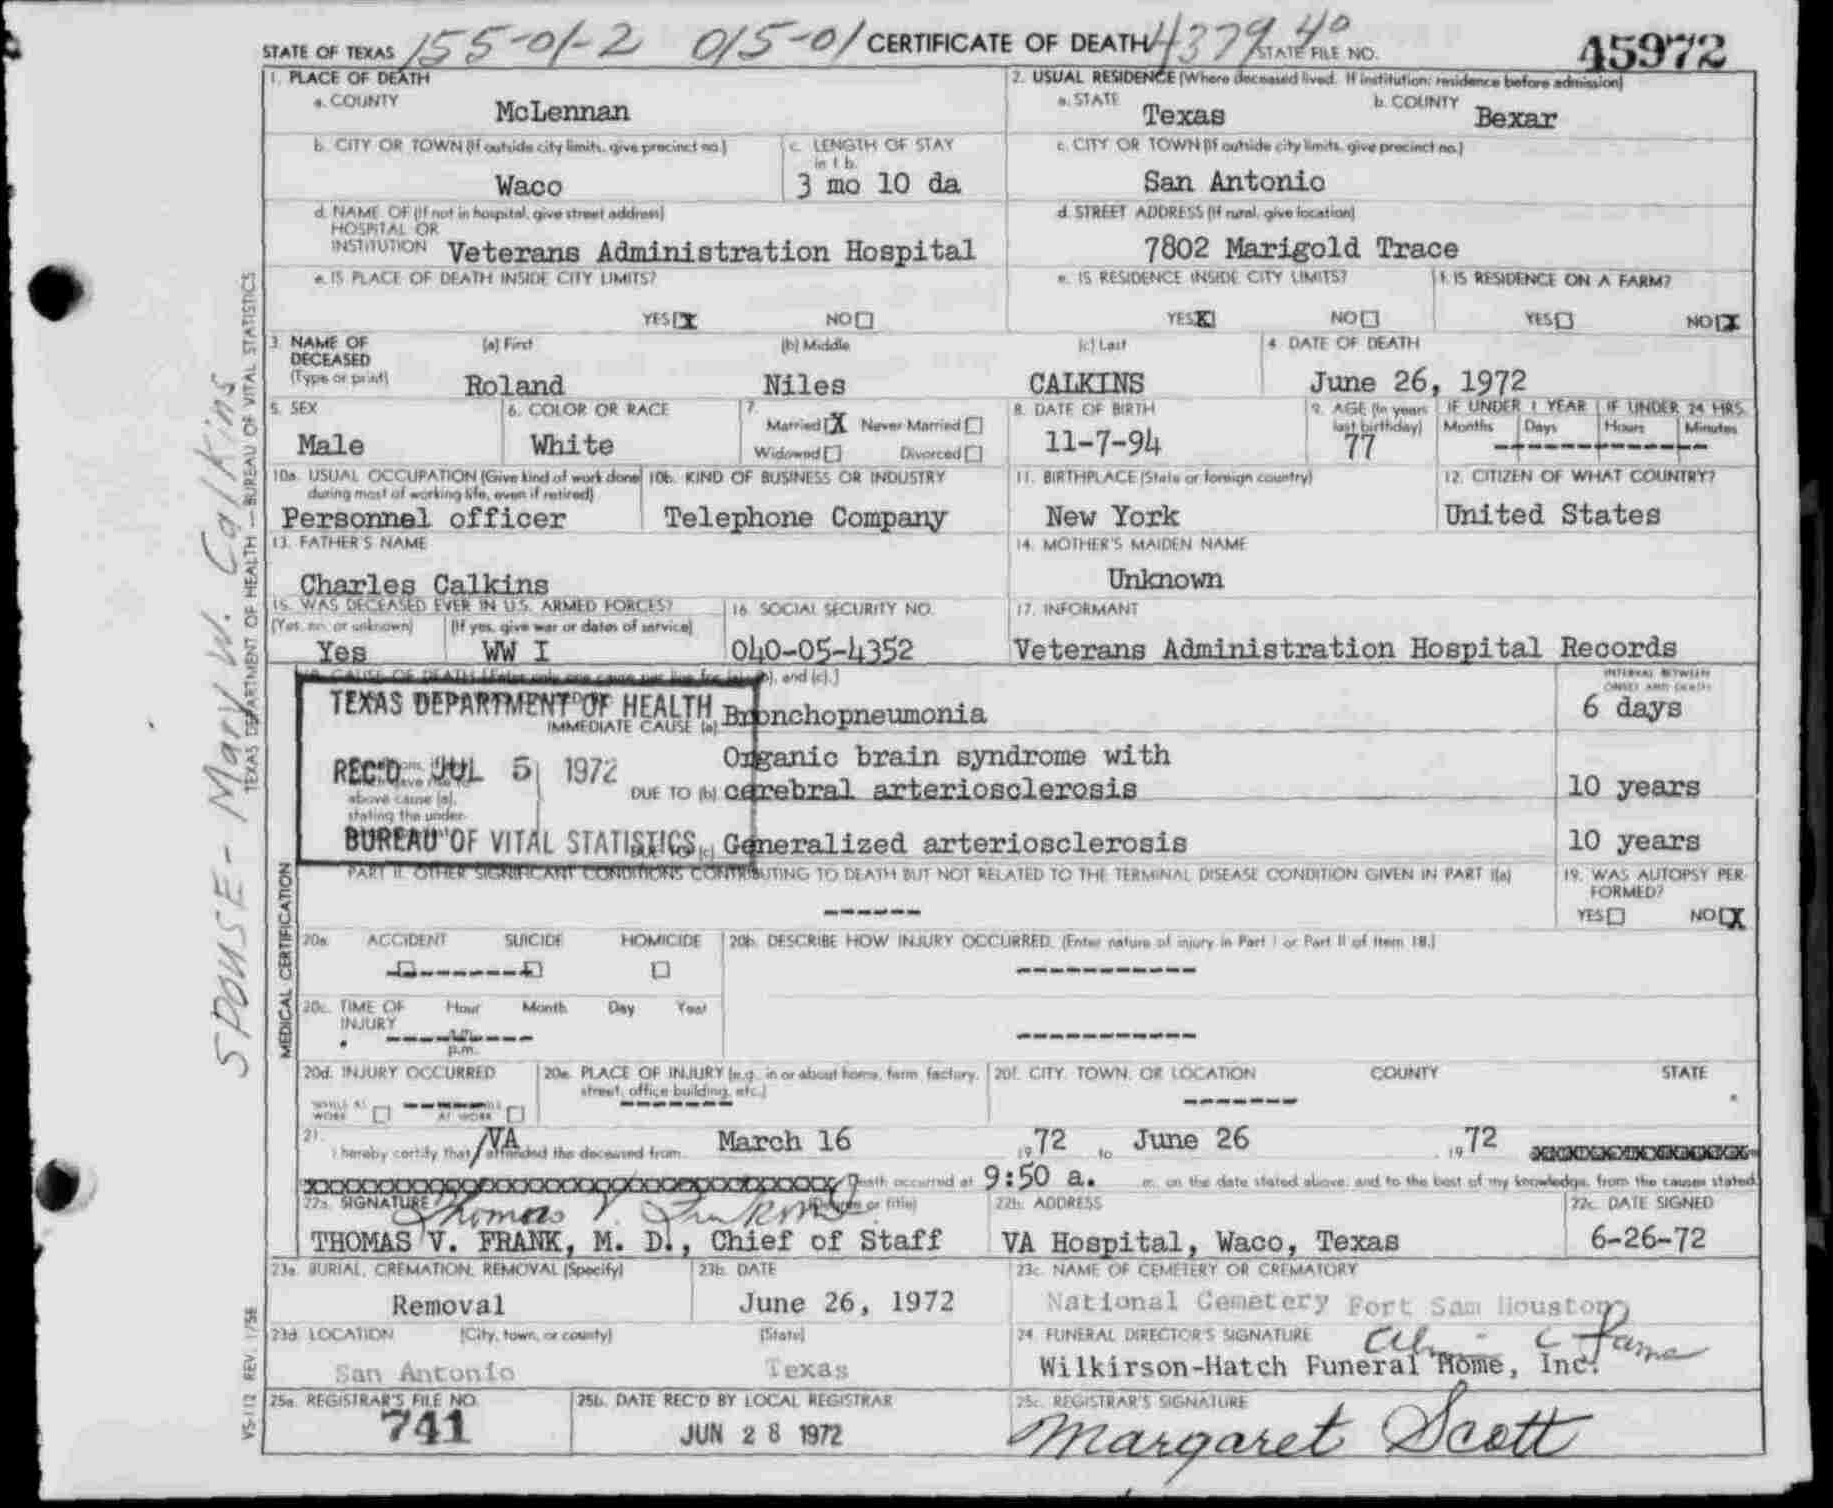 STATE OF TEXAS 155-01-2 015-01 CERTIFICATE OF DEATH 4379 40 STATE FILE NO. 45972
1. PLACE OF DEATH
a. COUNTY McLennan
2. USUAL RESIDENCE (Where deceased lived. If institution: residence before admission)
a. STATE Texas b. COUNTY Bexar
b. CITY OR TOWN (If outside city limits, give precinct no.) Waco
c. LENGTH OF STAY in 1 b. 3 mo 10 da
c. CITY OR TOWN (If outside city limits, give precinct no.) San Antonio
d. NAME OF (If not in hospital, give street address) HOSPITAL OR INSTITUTION Veterans Administration Hospital
d. STREET ADDRESS (If rural, give location) 7802 Marigold Trace
e. IS PLACE OF DEATH INSIDE CITY LIMITS? YES X NO
e. IS RESIDENCE INSIDE CITY LIMITS? YES X NO
f. IS RESIDENCE ON A FARM? YES NO X
3. NAME OF DECEASED (Type or print)
(a) First Roland
(b) Middle Niles
(c) Last CALKINS
4. DATE OF DEATH June 26, 1972
5. SEX Male
6. COLOR OR RACE White
7. Married X Never Married
Widowed Divorced
8. DATE OF BIRTH 11-7-94
9. AGE (In years last birthday) 77
IF UNDER 1 YEAR Months Days
IF UNDER 24 HRS. Hours Minutes
10a. USUAL OCCUPATION (Give kind of work done during most of working life, even if retired) Personnel officer
10b. KIND OF BUSINESS OR INDUSTRY Telephone Company
11. BIRTHPLACE (State or foreign country) New York
12. CITIZEN OF WHAT COUNTRY? United States
13. FATHER'S NAME Charles Calkins
14. MOTHER'S MAIDEN NAME Unknown
15. WAS DECEASED EVER IN U.S. ARMED FORCES?
(Yes, no, or unknown) Yes
(If yes, give war or dates of service) WW I
16. SOCIAL SECURITY NO. 040-05-4352
17. INFORMANT Veterans Administration Hospital Records
18. CAUSE OF DEATH [Enter only one cause per line for (a), (b), and (c).]
INTERVAL BETWEEN ONSET AND DEATH
TEXAS DEPARTMENT OF HEALTH
IMMEDIATE CAUSE (a) Bronchopneumonia 6 days
REC'D JUL 5 1972
above cause (a), stating the under-
DUE TO (b) Organic brain syndrome with
cerebral arteriosclerosis 10 years
BUREAU OF VITAL STATISTICS
(c) Generalized arteriosclerosis 10 years
PART II. OTHER SIGNIFICANT CONDITIONS CONTRIBUTING TO DEATH BUT NOT RELATED TO THE TERMINAL DISEASE CONDITION GIVEN IN PART I(a)
------
19. WAS AUTOPSY PERFORMED?
YES NO X
20a. ACCIDENT SUICIDE HOMICIDE
20b. DESCRIBE HOW INJURY OCCURRED. (Enter nature of injury in Part I or Part II of Item 18.)
------------
20c. TIME OF INJURY Hour Month Day Year
a.m.
p.m.
------------
20d. INJURY OCCURRED
WHILE AT WORK AT WORK
20e. PLACE OF INJURY (e.g., in or about home, farm, factory, street, office building, etc.)
20f. CITY, TOWN, OR LOCATION COUNTY STATE
21. I hereby certify that VA attended the deceased from March 16 1972 to June 26 1972
Death occurred at 9:50 a. m. on the date stated above, and to the best of my knowledge, from the causes stated.
22a. SIGNATURE (Degree or title)
THOMAS V. FRANK, M. D., Chief of Staff
22b. ADDRESS VA Hospital, Waco, Texas
22c. DATE SIGNED 6-26-72
23a. BURIAL, CREMATION, REMOVAL (Specify) Removal
23b. DATE June 26, 1972
23c. NAME OF CEMETERY OR CREMATORY National Cemetery Fort Sam Houston
23d. LOCATION (City, town, or county) (State)
San Antonio Texas
24. FUNERAL DIRECTOR'S SIGNATURE
Wilkirson-Hatch Funeral Home, Inc.
25a. REGISTRAR'S FILE NO. 741
25b. DATE REC'D BY LOCAL REGISTRAR JUN 28 1972
25c. REGISTRAR'S SIGNATURE Margaret Scott
SPOUSE - Mary W. Calkins
TEXAS DEPARTMENT OF HEALTH — BUREAU OF VITAL STATISTICS
MEDICAL CERTIFICATION
VS-112 REV. 1/58